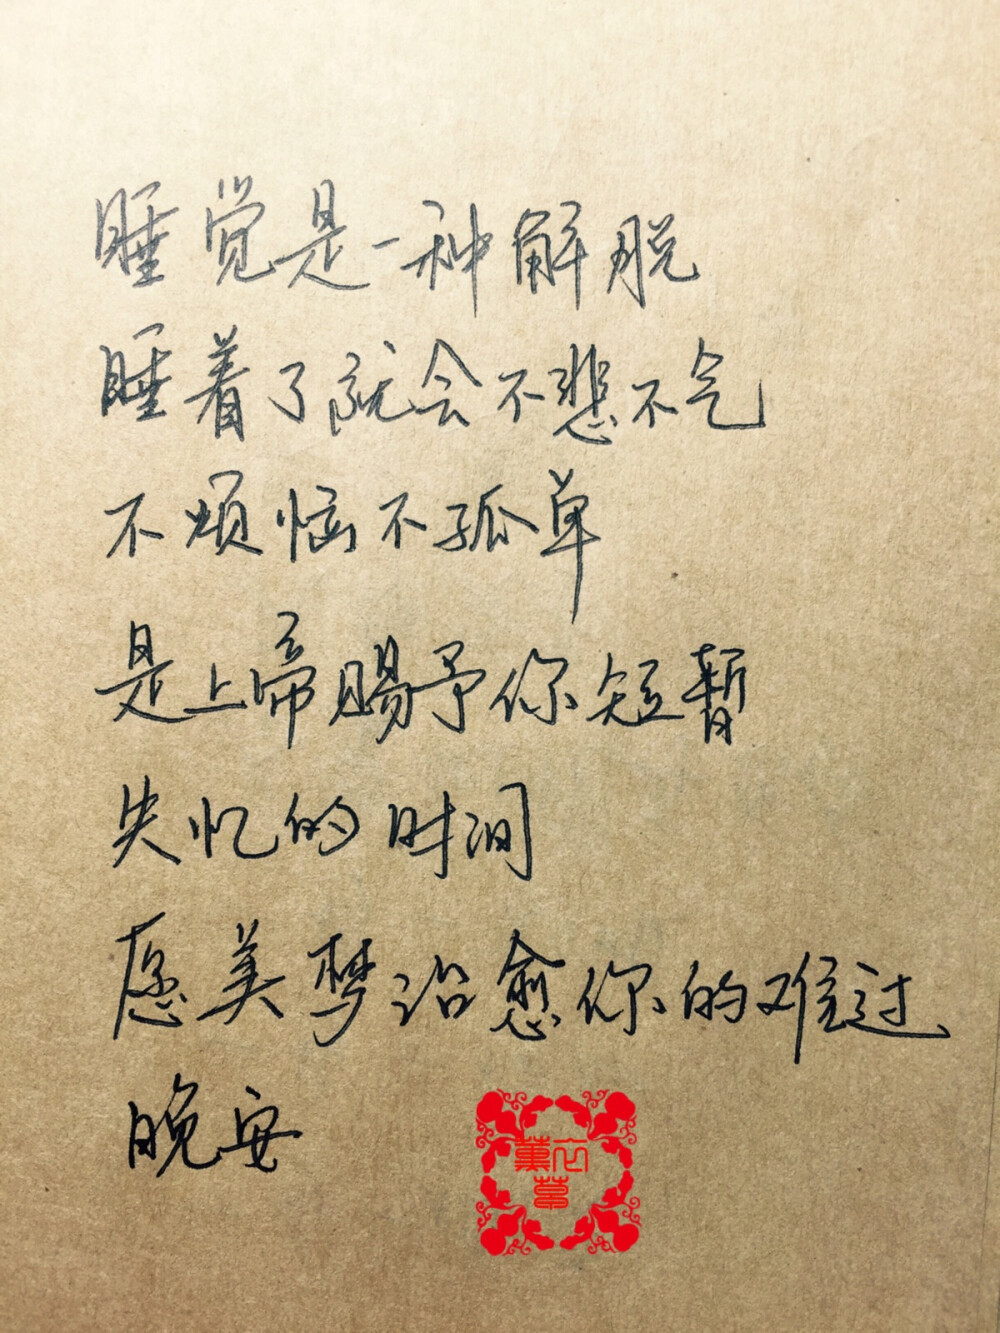 睡觉是一种解脱
睡着了就会不悲不气
不烦恼不孤单
是上帝赐予你短暂
失忆的时间
愿美梦治愈你的难过
晚安